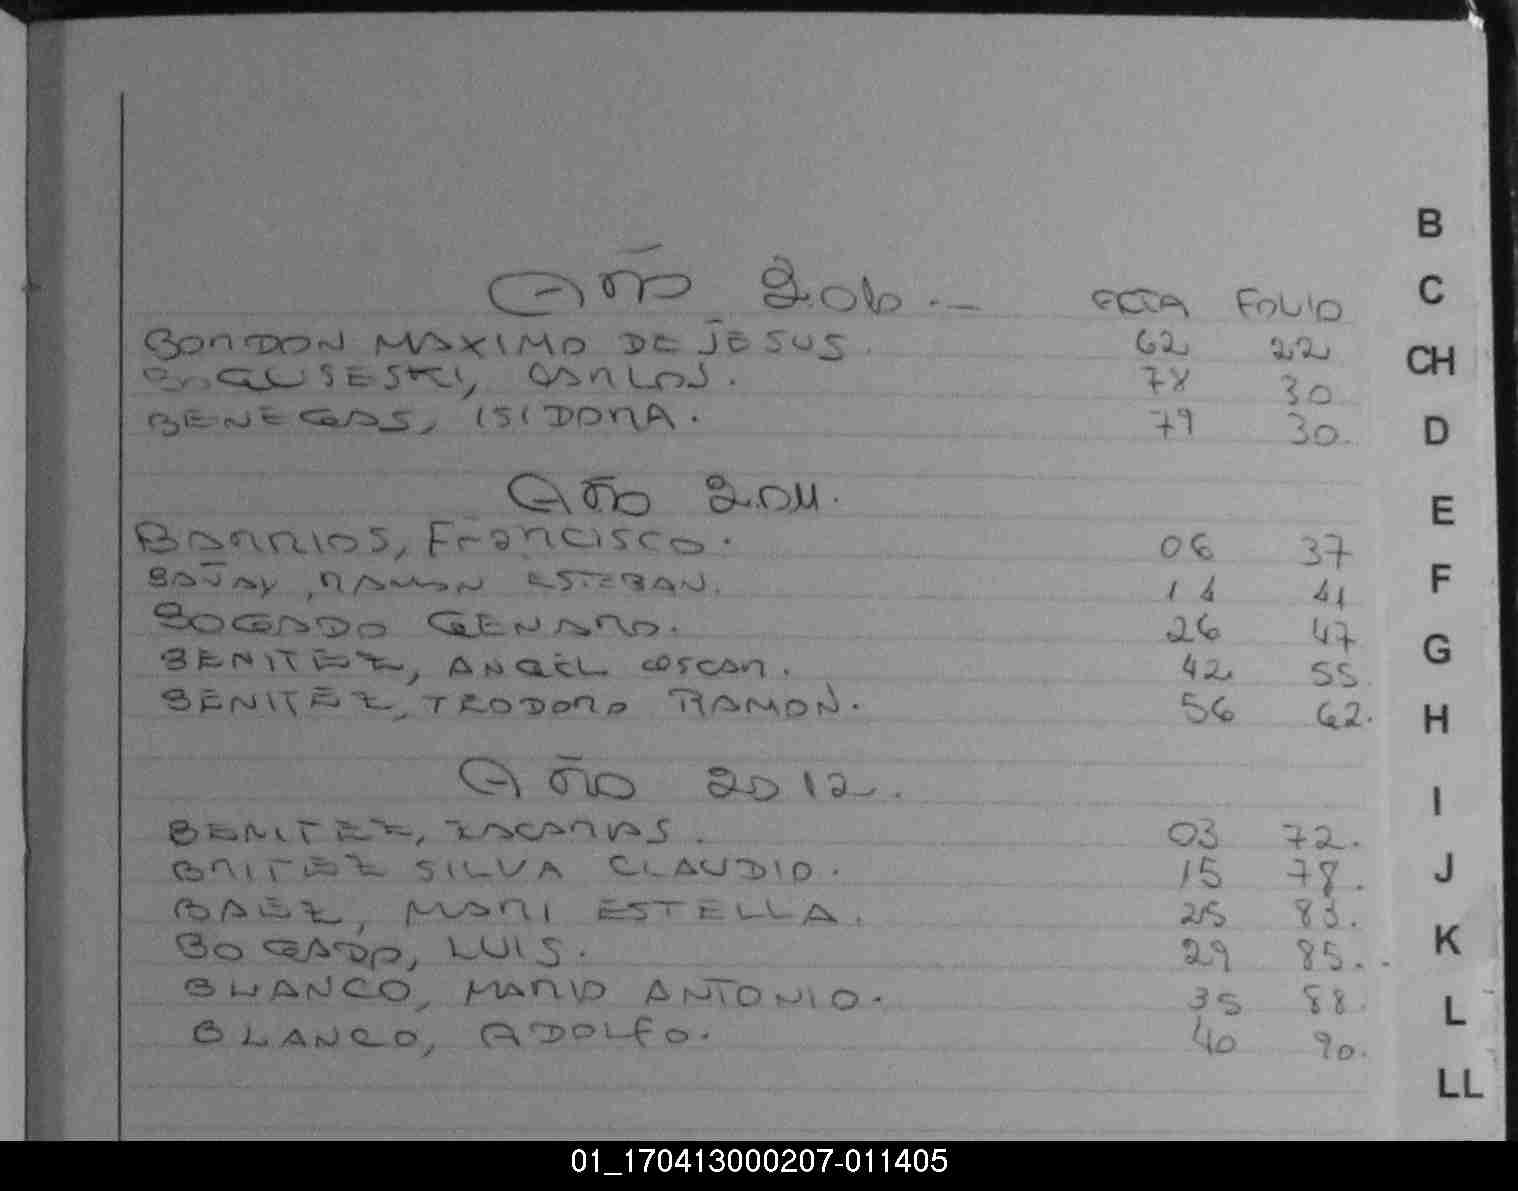 B
AÑO 2010.- ACTA FOLIO
C
BORDON MAXIMO DE JESUS. 62 22
CH
BOGUSESKI, CARLOS. 78 30
BENEGAS, ISIDORA. 79 30.
D
AÑO 2.011.
E
BARRIOS, Francisco. 06 37
F
RAMON ESTEBAN. 14 41
BOGADO GENARO. 26 47
G
BENITEZ, ANGEL OSCAR. 42 55
BENITEZ, TEODORO RAMON. 56 62.
H
AÑO 2012.
I
BENITEZ, ZACARIAS. 03 72.
BRITEZ SILVA CLAUDIO. 15 78.
J
BAEZ, MARI ESTELLA. 25 83.
BOGADO, LUIS. 29 85.
K
BLANCO, MARIO ANTONIO. 35 88.
L
BLANCO, ADOLFO. 40 90.
LL
01_170413000207-011405